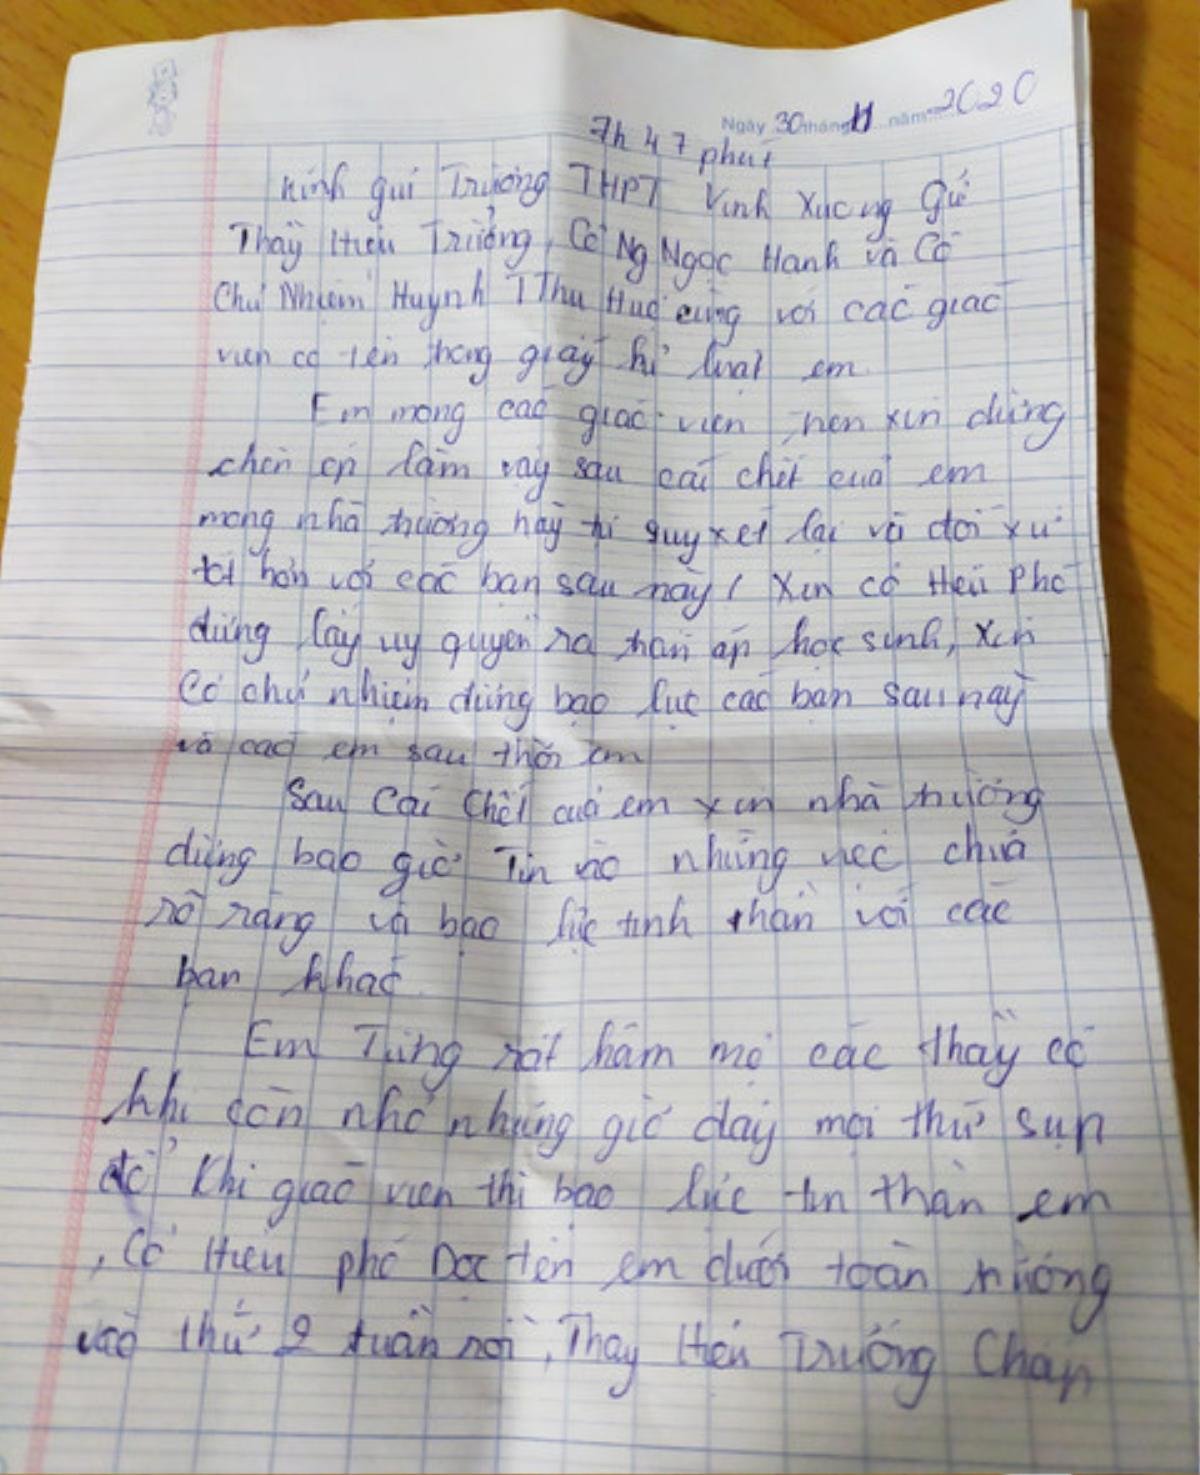 Ngày 30 tháng 11 năm 2020
7h 47 phút
Kính gửi Trường THPT Vĩnh Xương Gửi
Thầy Hiệu Trưởng, Cô Ng Ngọc Hanh và Cô
Chủ Nhiệm Huỳnh T Thu Huệ cùng với các giáo
viên có tên trong giấy kỉ luật em.
Em mong các giáo viên, xin đừng
chèn ép lầm vậy sau cái chết của em
mong nhà trường hãy quyết lại và đối xử
tốt hơn với các bạn sau này! Xin cô Hiệu Phó
đừng lấy uy quyền ra trấn áp học sinh, xin
Cô chủ nhiệm đừng bạo lực các bạn sau này
và các em sau thời em
Sau Cái Chết của em xin nhà trường
đừng bao giờ Tin vào những việc chưa
rõ ràng và bạo lực tinh thần với các
bạn khác.
Em Từng rất hâm mộ các thầy cô
khi còn nhỏ nhưng giờ đây mọi thứ sụp
đổ khi giáo viên thì bạo lực tin thần em
, Cô Hiệu phó Đọc tên em dưới toàn trường
vào thứ 2 tuần rồi, Thầy Hiệu Trưởng Chấp